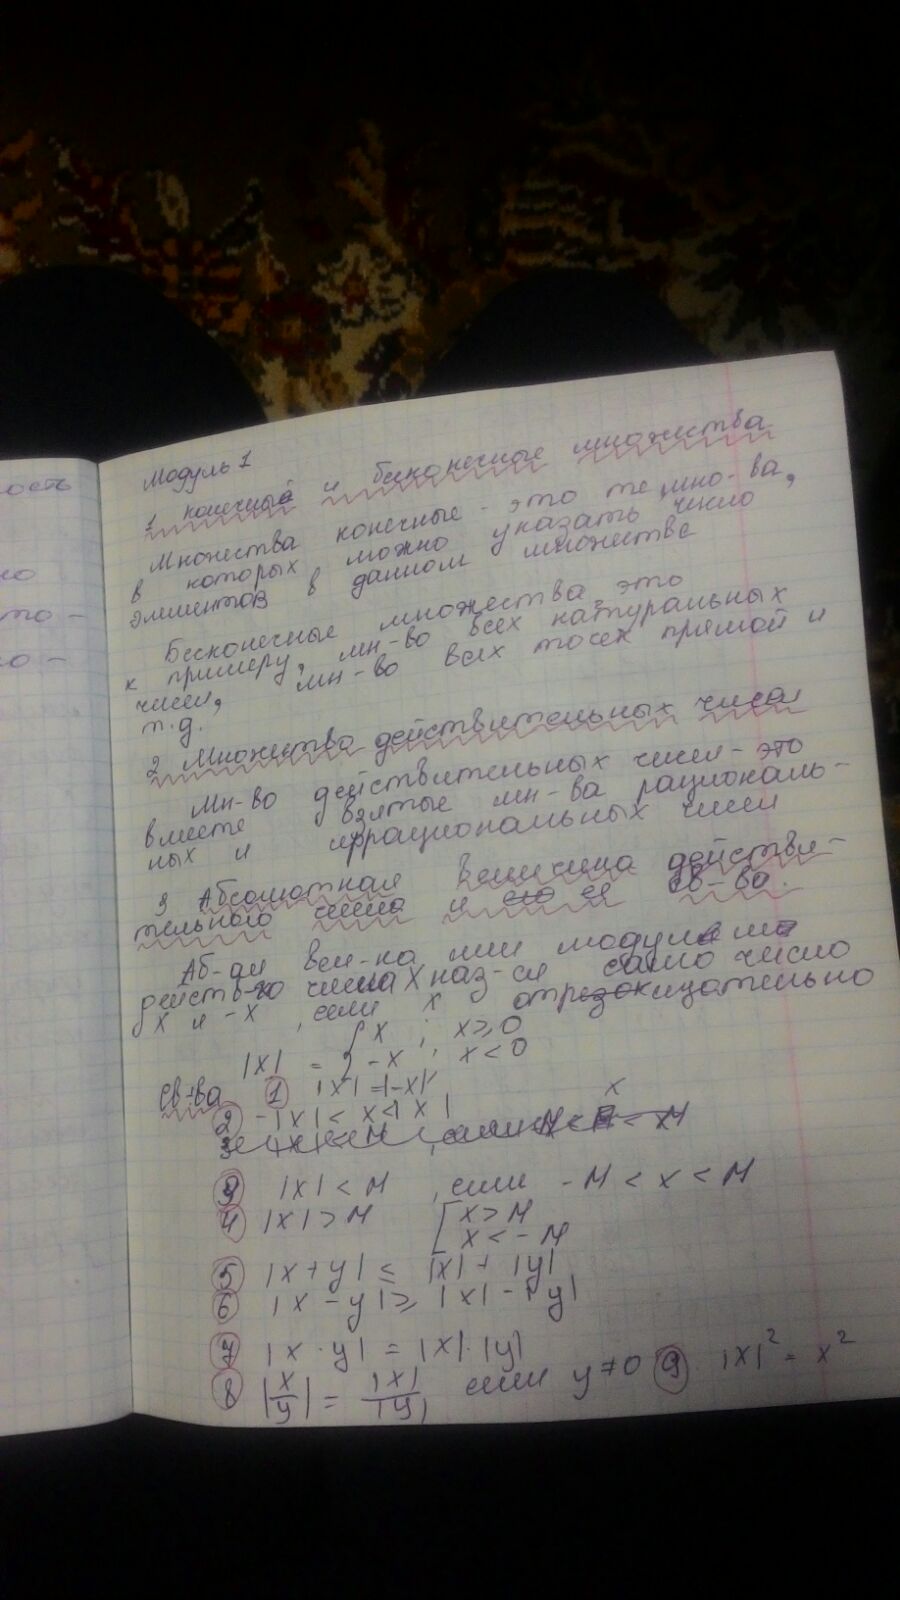 ность
но
сто-
со-
Модуль 1
1 конечный и бесконечные множества
Множества конечные - это те мно-ва,
в которых можно указать число
элементов в данном множестве
Бесконечные множества, это
к примеру, мн-во всех натуральных
чисел, мн-во всех точек прямой и
т.д.
2 Множества действительных чисел
Мн-во действительных чисел - это
вместе взятые мн-ва рациональ-
ных и иррациональных чисел
3 Абсолютная величина действи-
тельного числа и её св-во.
Аб-ая вел-на или модулем
действ-го числа X наз-ся само число
X и -X, если X отрицательно
|X| = { X ; X ≥ 0
-X ; X < 0
Св-ва 1 |X| = |-X|
2 -|X| < X < |X|
3 |X| < M , если -M < X < M
4 |X| > M [ X > M
X < -M
5 |X + y| ≤ |X| + |y|
6 |X - y| ≥ |X| - |y|
7 |X · y| = |X| · |y|
8 |X/y| = |X|/|y| если y ≠ 0 9 |X|² = X²